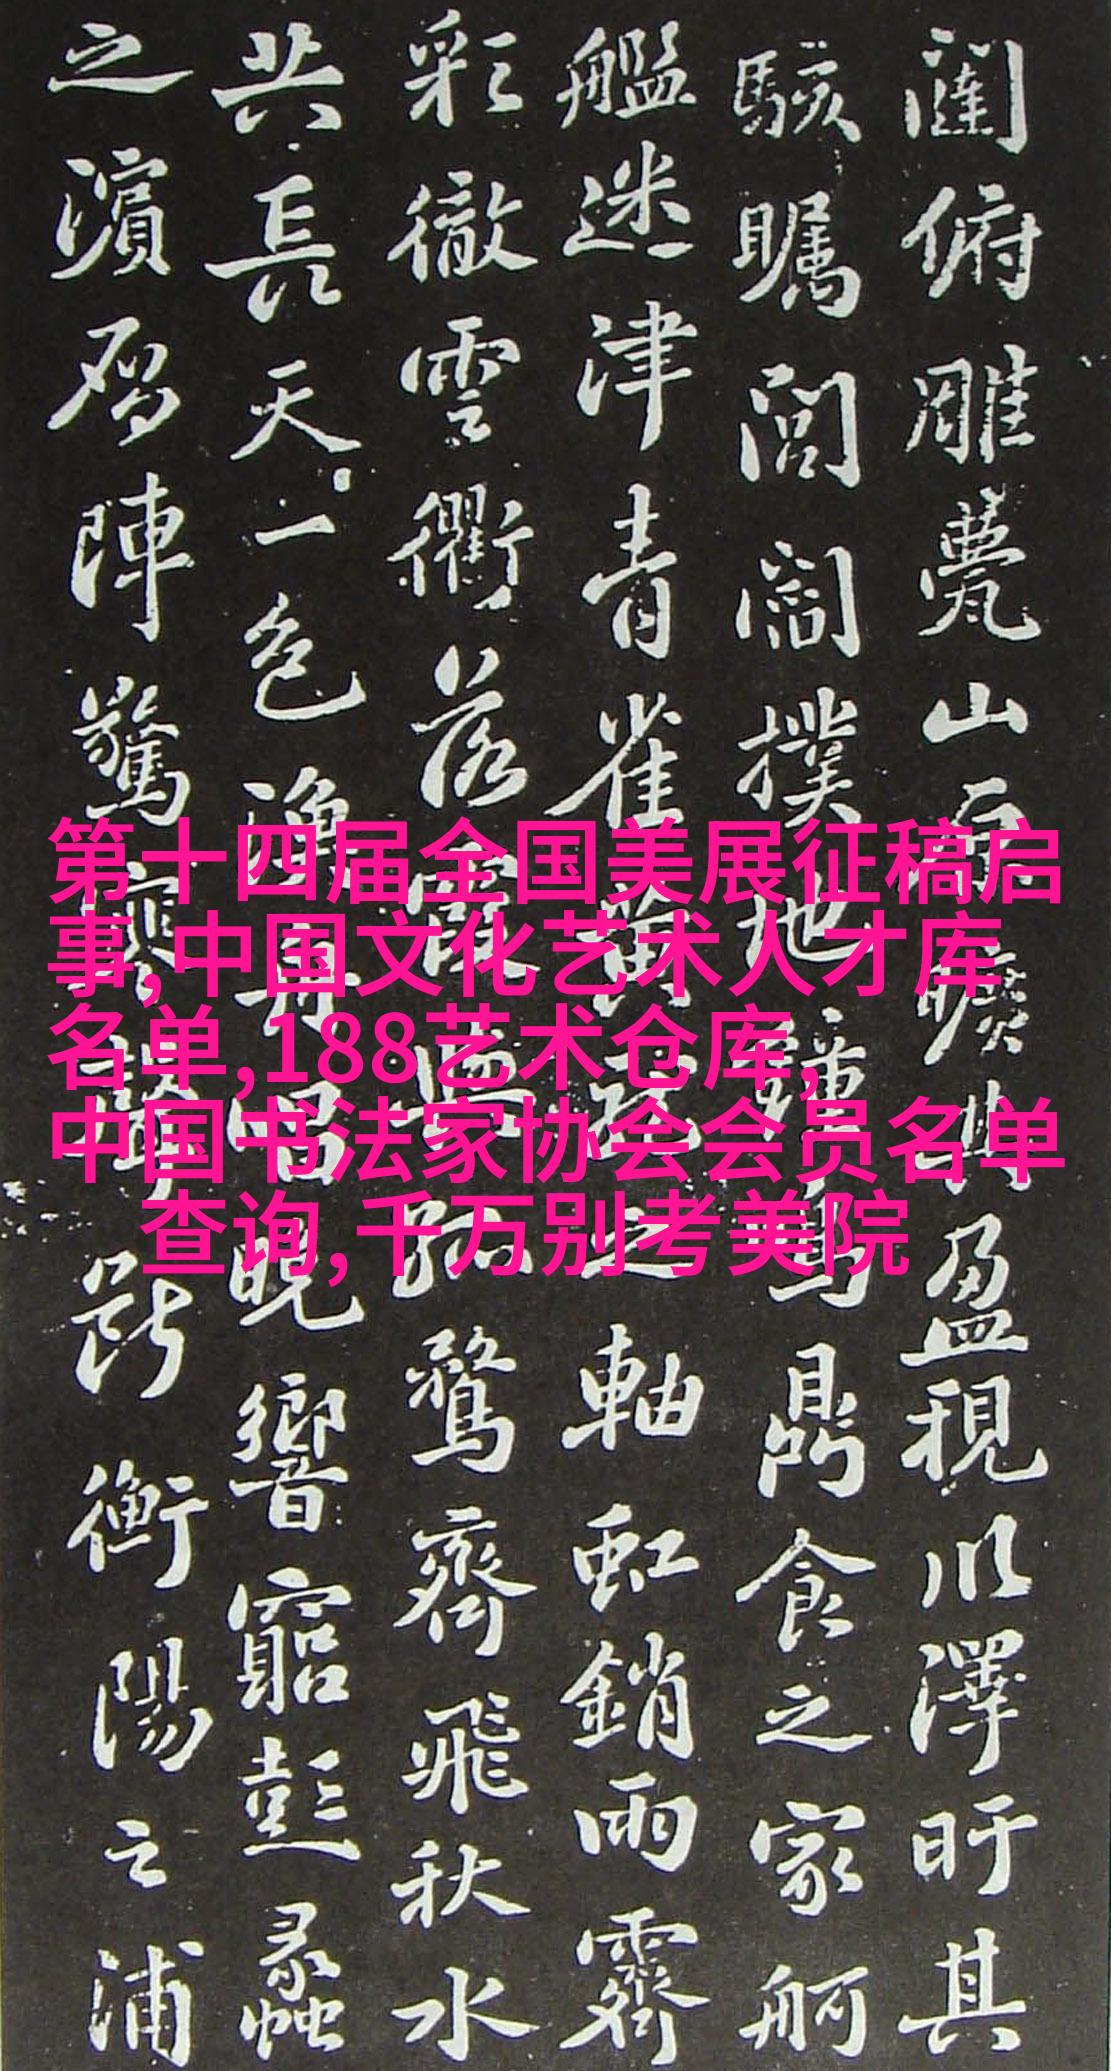 闥俯雕甍山原曠其盈視川澤盱其
駭矚閭閻撲地鍾鳴鼎食之家舸
艦迷津青雀黃龍之軸虹銷雨霽
彩徹雲衢落霞與孤鶩齊飛秋水
共長天一色漁舟唱晚響窮彭蠡
之濱雁陣驚寒聲斷衡陽之浦
第十四届全国美展征稿启
事,中国文化艺术人才库
名单,188艺术仓库,
中国书法家协会会员名单
查询,千万别考美院